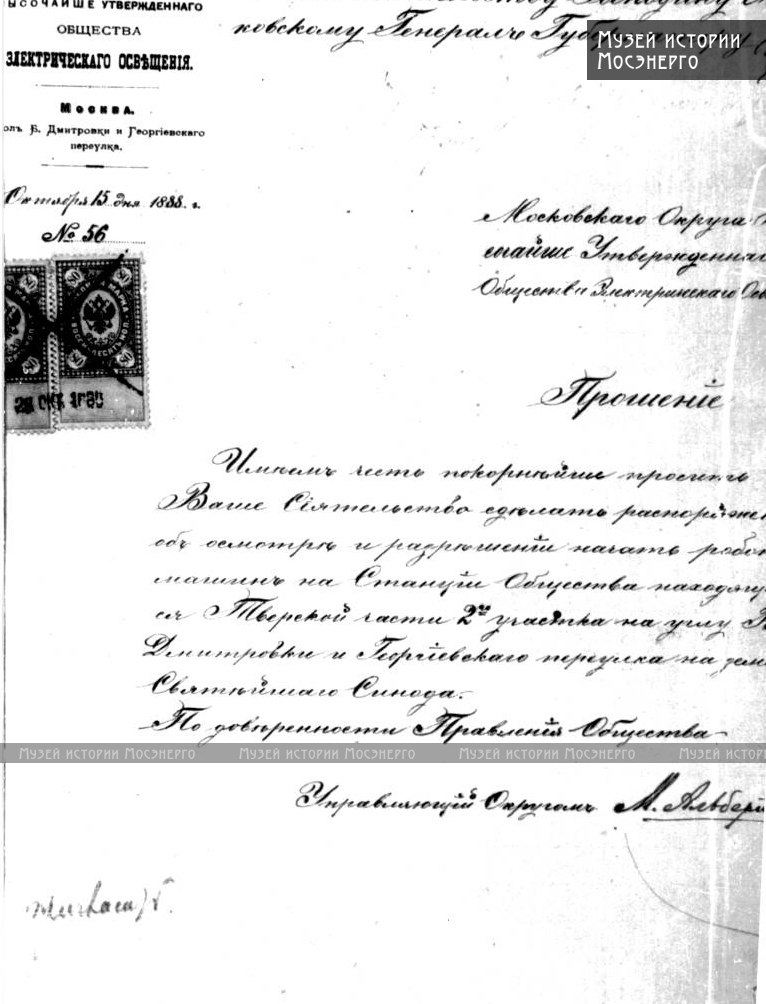 ЫСОЧАЙШЕ УТВЕРЖДЕННАГО
ОБЩЕСТВА
ЭЛЕКТРИЧЕСКАГО ОСВѢЩЕНІЯ.
Москва.
Б. Дмитровки и Георгіевскаго
переулка.
Октября 15 дня 1888 г.
№ 56
ковскому Генералъ Губернатору
Музей истории
Мосэнерго
Московскаго Округа
сочайше Утвержденнаго
Общества Электрическаго
80 80
80 80
Прошеніе
Имѣемъ честь покорнѣйше просить
Ваше Сіятельство сдѣлать распоряже
объ осмотрѣ и разрѣшеніи начать рабо
машинъ на Станціи Общества находящ
ся Тверской части 2го участка на углу Б
Дмитровки и Георгіевскаго переулка на зем
Святѣйшаго Синода.
По довѣренности Правленія Общества
Музей истории Мосэнерго Музей истории Мосэнерго Музей истории Мосэнерго Музей исто
Управляющій Округомъ М. Альбер